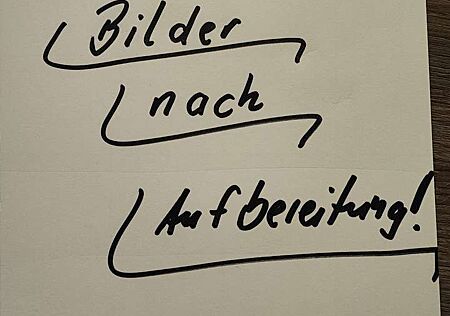 Bilder
nach
Aufbereitung!